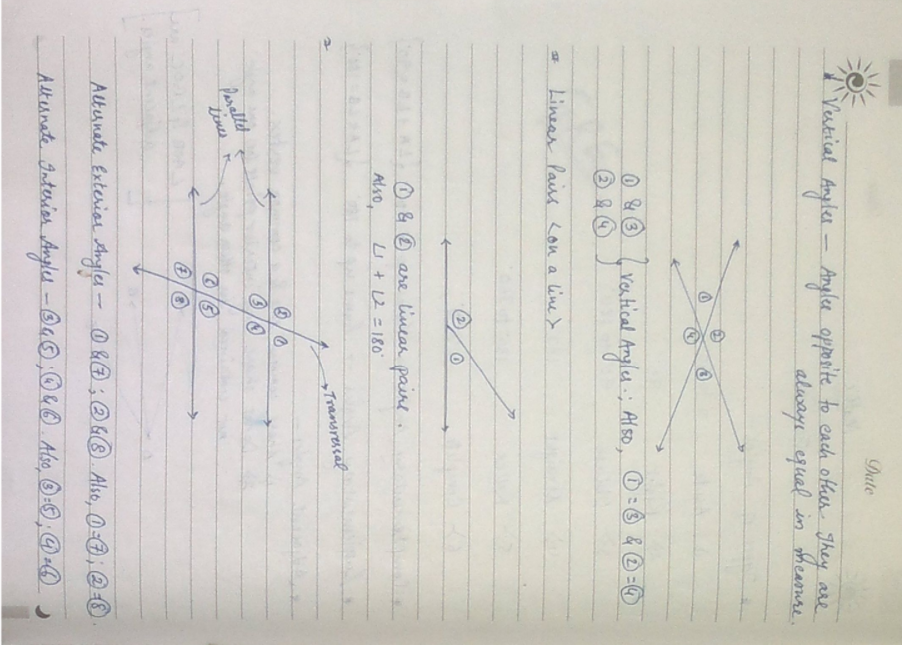 Date
Vertical Angles — Angles opposite to each other. They are
always equal in measure.
① ② ③ ④
① & ③ } Vertical Angles.; Also, ① = ③ & ② = ④
② & ④
= Linear Pairs <on a line>
② ①
① & ② are linear pairs.
Also, ∠1 + ∠2 = 180°
Transversal
Parallel
Lines
② ①
③ ④
⑥ ⑤
⑦ ⑧
Alternate Exterior Angles — ① & ⑦ ; ② & ⑧. Also, ①=⑦ ; ②=⑧.
Alternate Interior Angles — ③ & ⑤ ; ④ & ⑥. Also, ③=⑤ ; ④=⑥